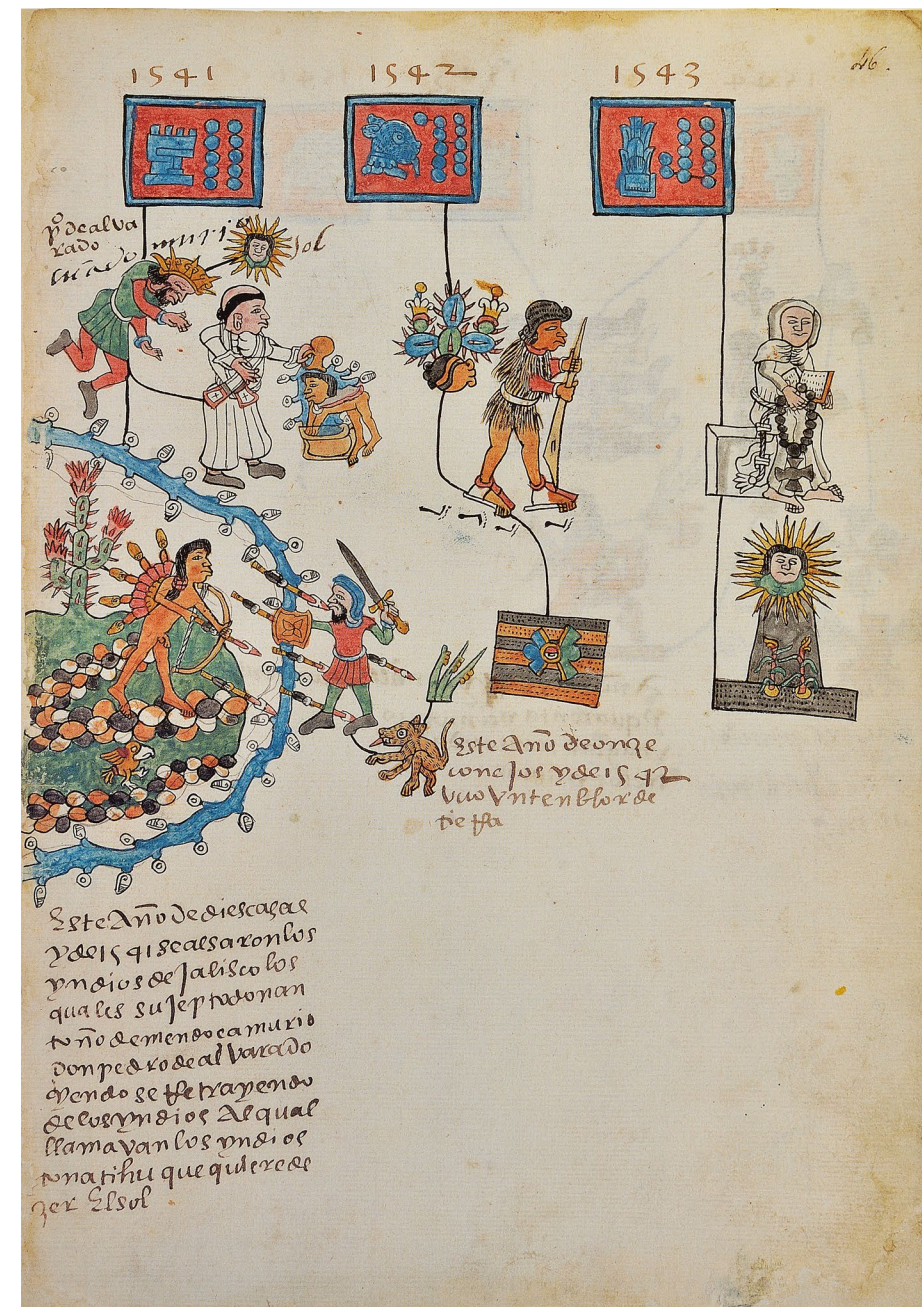 46.
1541
1542
1543
po dealva
rado
murio
sol
Este Año de onze
conejos y de 1542
uvo un tenblor de
tieRa
Este Año de diescasas
y de 1541 se alsaron los
yndios de Jalisco los
quales sujepto don an
toño de mendoca murio
don pedro de alvarado
yendo se Retrayendo
de los yndios Al qual
llamavan los yndios
tonatihu que quiere de
zer El sol